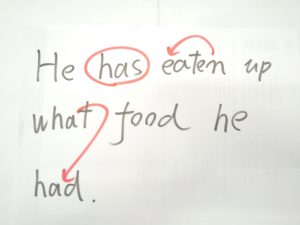 He has eaten up
what food he
had.